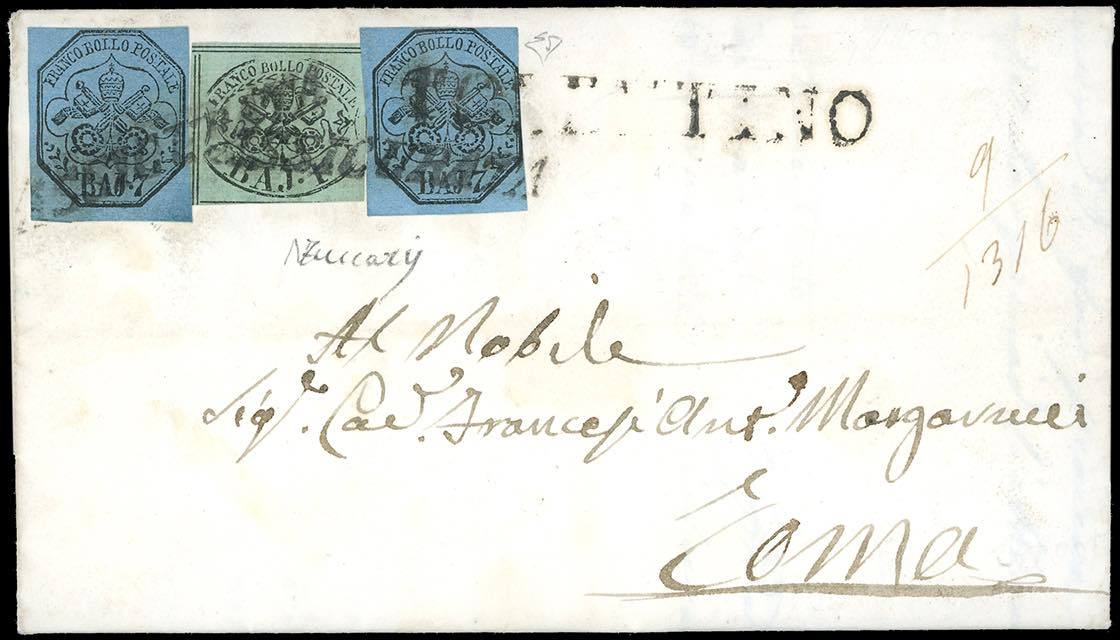 FRANCO BOLLO POSTALE
BAJ. 7
FRANCO BOLLO POSTALE
BAJ. 1
FRANCO BOLLO POSTALE
BAJ. 7
TOLENTINO
9
1316
Al Nobile
Sigr. Cav. Francesco Ant.
Roma